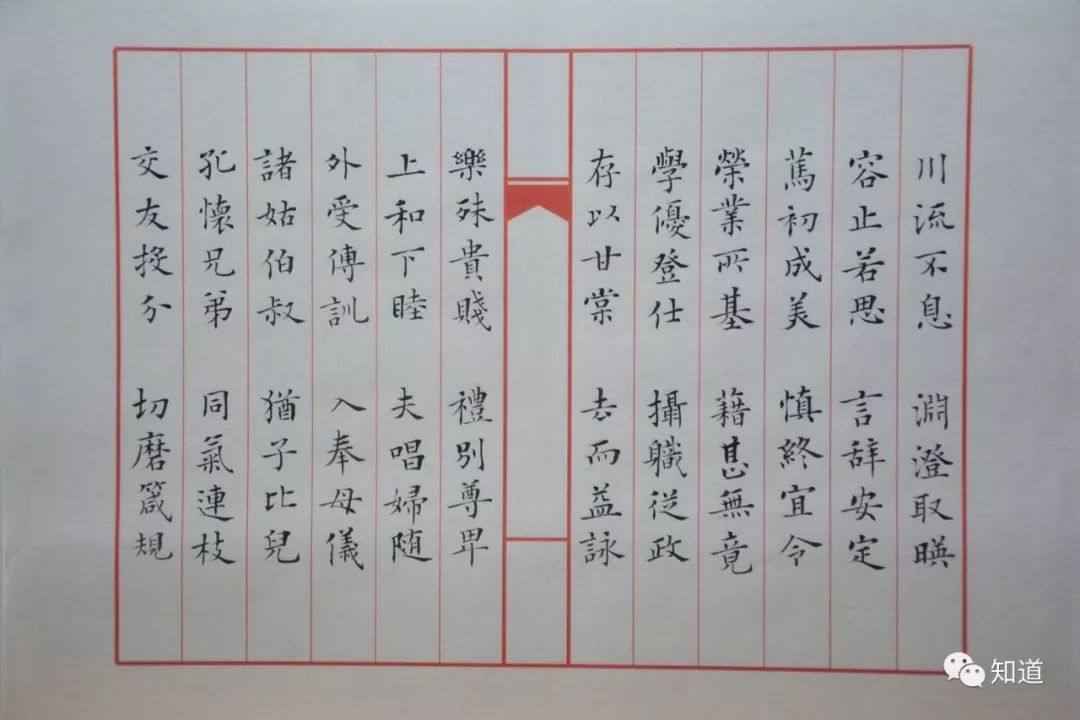 川流不息 淵澄取暎
容止若思 言辞安定
篤初成美 慎終宜令
榮業所基 藉甚無竟
學優登仕 攝職従政
存以甘棠 去而益詠
樂殊貴賤 禮別尊卑
上和下睦 夫唱婦随
外受傅訓 入奉母儀
諸姑伯叔 猶子比兒
孔懷兄弟 同氣連枝
交友投分 切磨箴規
知道